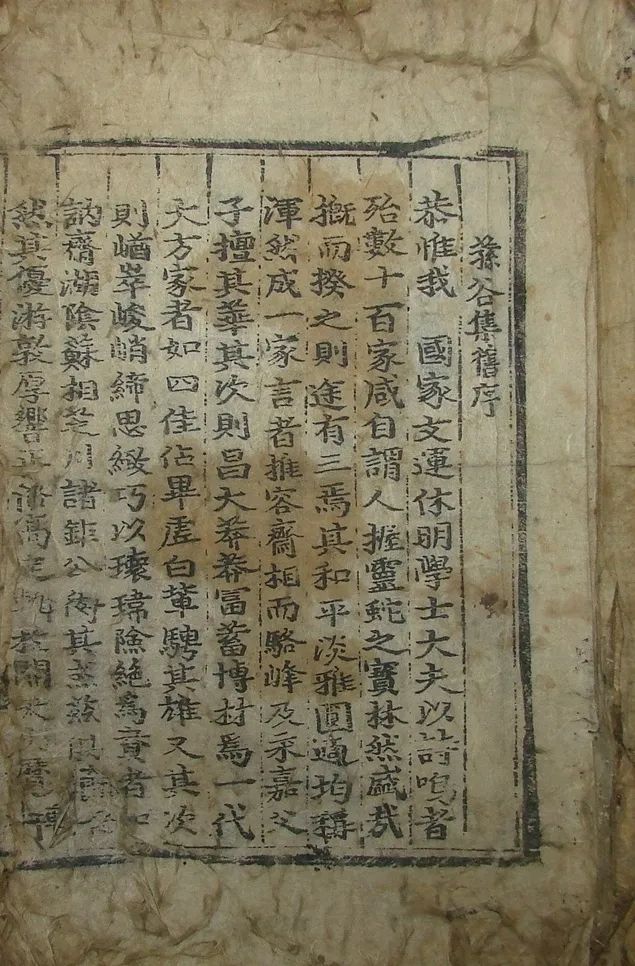 蓀谷集舊序
恭惟我 國家文運休明學士大夫以詩鳴者
殆數十百家咸自謂人握靈蛇之寶林然盛哉
摡而揆之則途有三焉其和平淡雅圓適均稱
渾然成一家言者推容齋相而駱峰及永嘉父
子擅其華其次則昌大莽莽富蓄博材爲一代
大方家者如四佳佔畢虛白輩騁其雄又其次
則崷崒峻峭締思緻巧以瓌瑋險絶爲貴者如
訥齋湖陰蘇相芝川諸鉅公
然其優游敦厚響